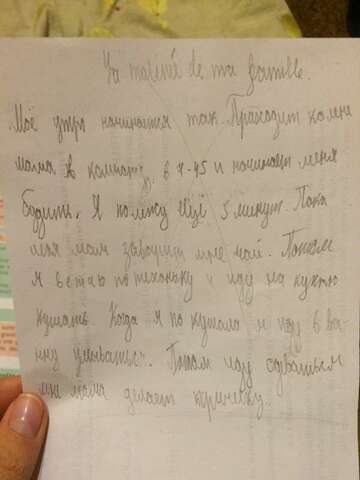 La matiné de ma famille.
Моё утро начинается так. Приходит ко мне
мама в комнату в 7-45 и начинает меня
будить. Я полежу ещё 5 минут. Пока
моя мам заварит мне чай. Потом
я встаю потихоньку и иду на кухню
кушать. Когда я покушала я иду в ва-
ну умываться. Потом иду одеваться
мне мама делает причёску.